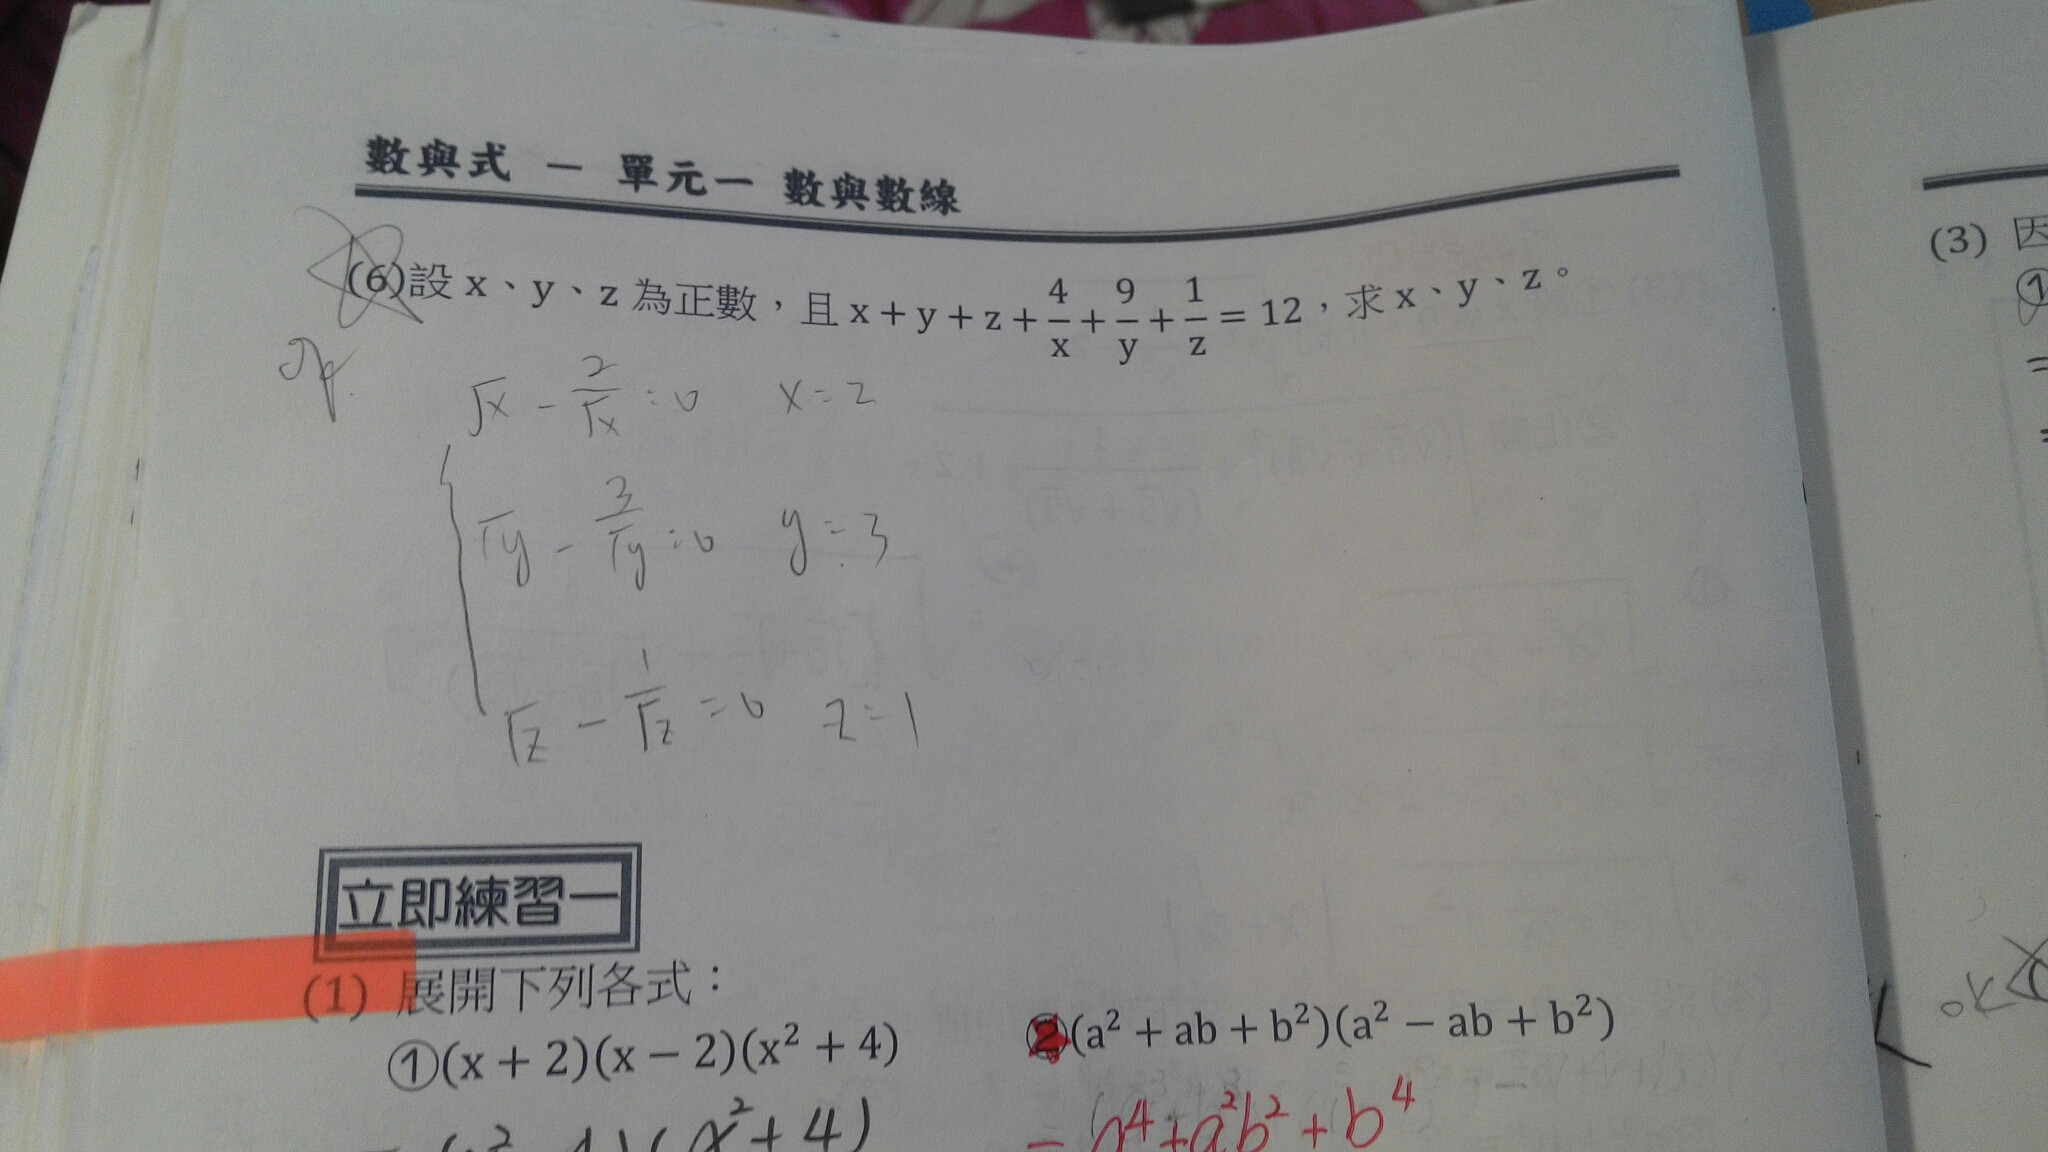 數與式 － 單元一 數與數線
(6)設 x、y、z 為正數，且 x + y + z + 4/x + 9/y + 1/z = 12，求 x、y、z。
√x - 2/√x = 0 x = 2
√y - 3/√y = 0 y = 3
√z - 1/√z = 0 z = 1
立即練習一
(1) 展開下列各式：
①(x + 2)(x − 2)(x² + 4)
②(a² + ab + b²)(a² − ab + b²)
(x² + 4)
= a⁴ + a²b² + b⁴
(3) 因
①
=
=
ok